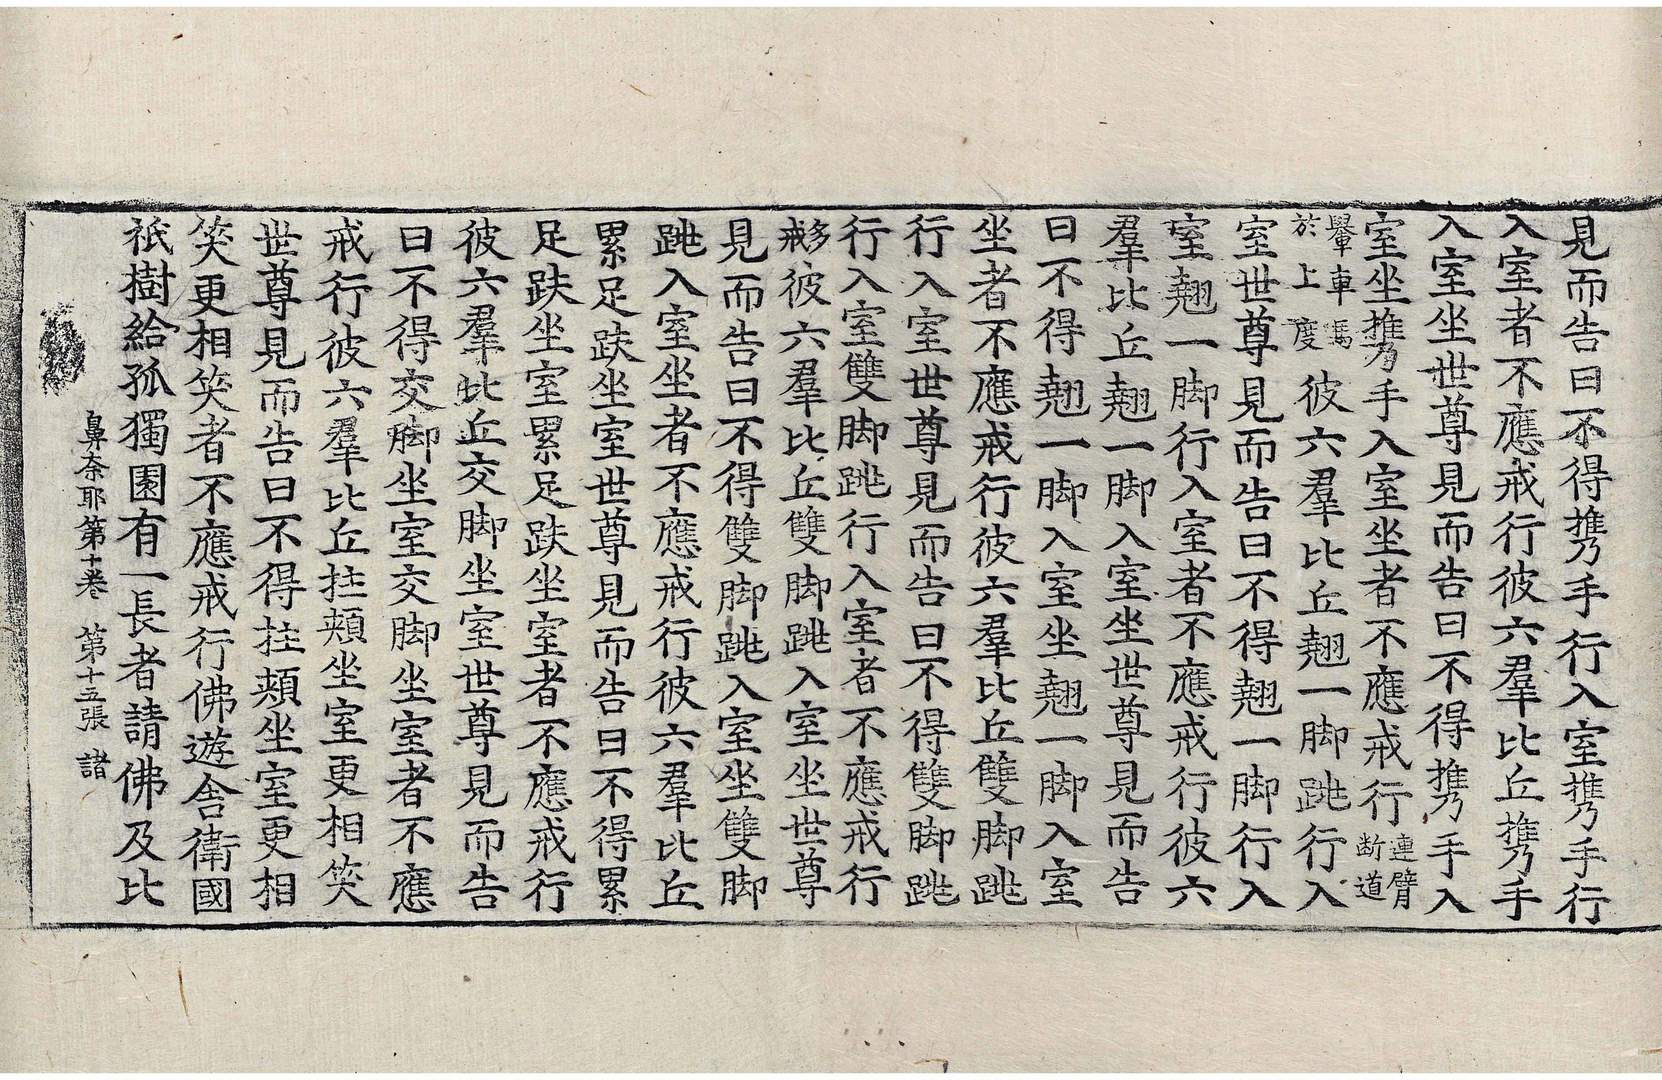 見而告曰不得㩗手行入室㩗手行
入室者不應戒行彼六羣比丘㩗手
入室坐世尊見而告曰不得㩗手入
室坐㩗手入室坐者不應戒行連臂断道
轝車馬於上度彼六羣比丘翹一脚跳行入
室世尊見而告曰不得翹一脚行入
室翹一脚行入室者不應戒行彼六
羣比丘翹一脚入室坐世尊見而告
曰不得翹一脚入室坐翹一脚入室
坐者不應戒行彼六羣比丘雙脚跳
行入室世尊見而告曰不得雙脚跳
行入室雙脚跳行入室者不應戒行
多戒彼六羣比丘雙脚跳入室坐世尊
見而告曰不得雙脚跳入室坐雙脚
跳入室坐者不應戒行彼六羣比丘
累足趺坐室世尊見而告曰不得累
足趺坐室累足趺坐室者不應戒行
彼六羣比丘交脚坐室世尊見而告
曰不得交脚坐室交脚坐室者不應
戒行彼六羣比丘拄頰坐室更相笑
世尊見而告曰不得拄頰坐室更相
笑更相笑者不應戒行佛遊舍衛國
祇樹給孤獨園有一長者請佛及比
鼻奈耶第十卷　第十五張　諸